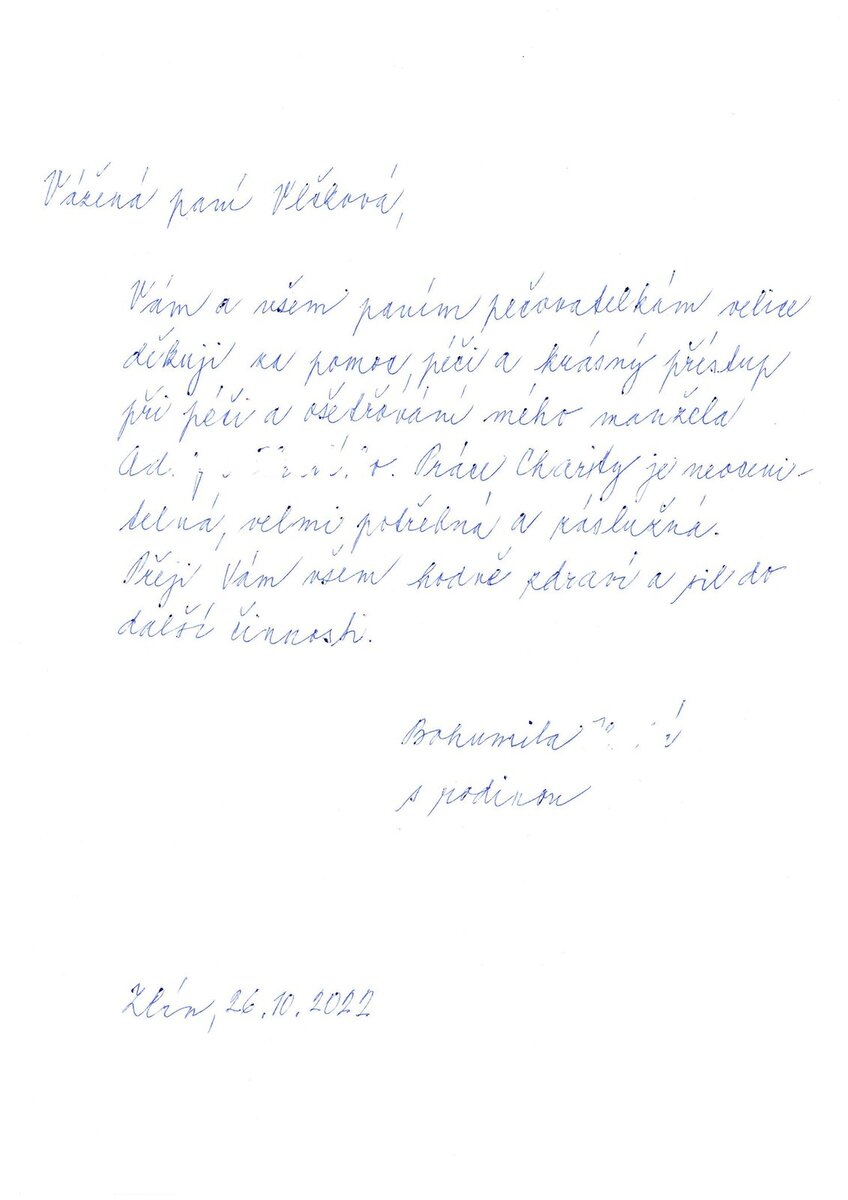 Vážená paní Vlčková,
Vám a všem paním pečovatelkám velice
děkuji za pomoc, péči a krásný přístup
při péči a ošetřování mého manžela
Ad. Práce Charity je neoceni-
telná, velmi potřebná a záslužná.
Přeji Vám všem hodně zdraví a sil do
další činnosti.
Bohumila
s rodinou
Zlín, 26.10.2022